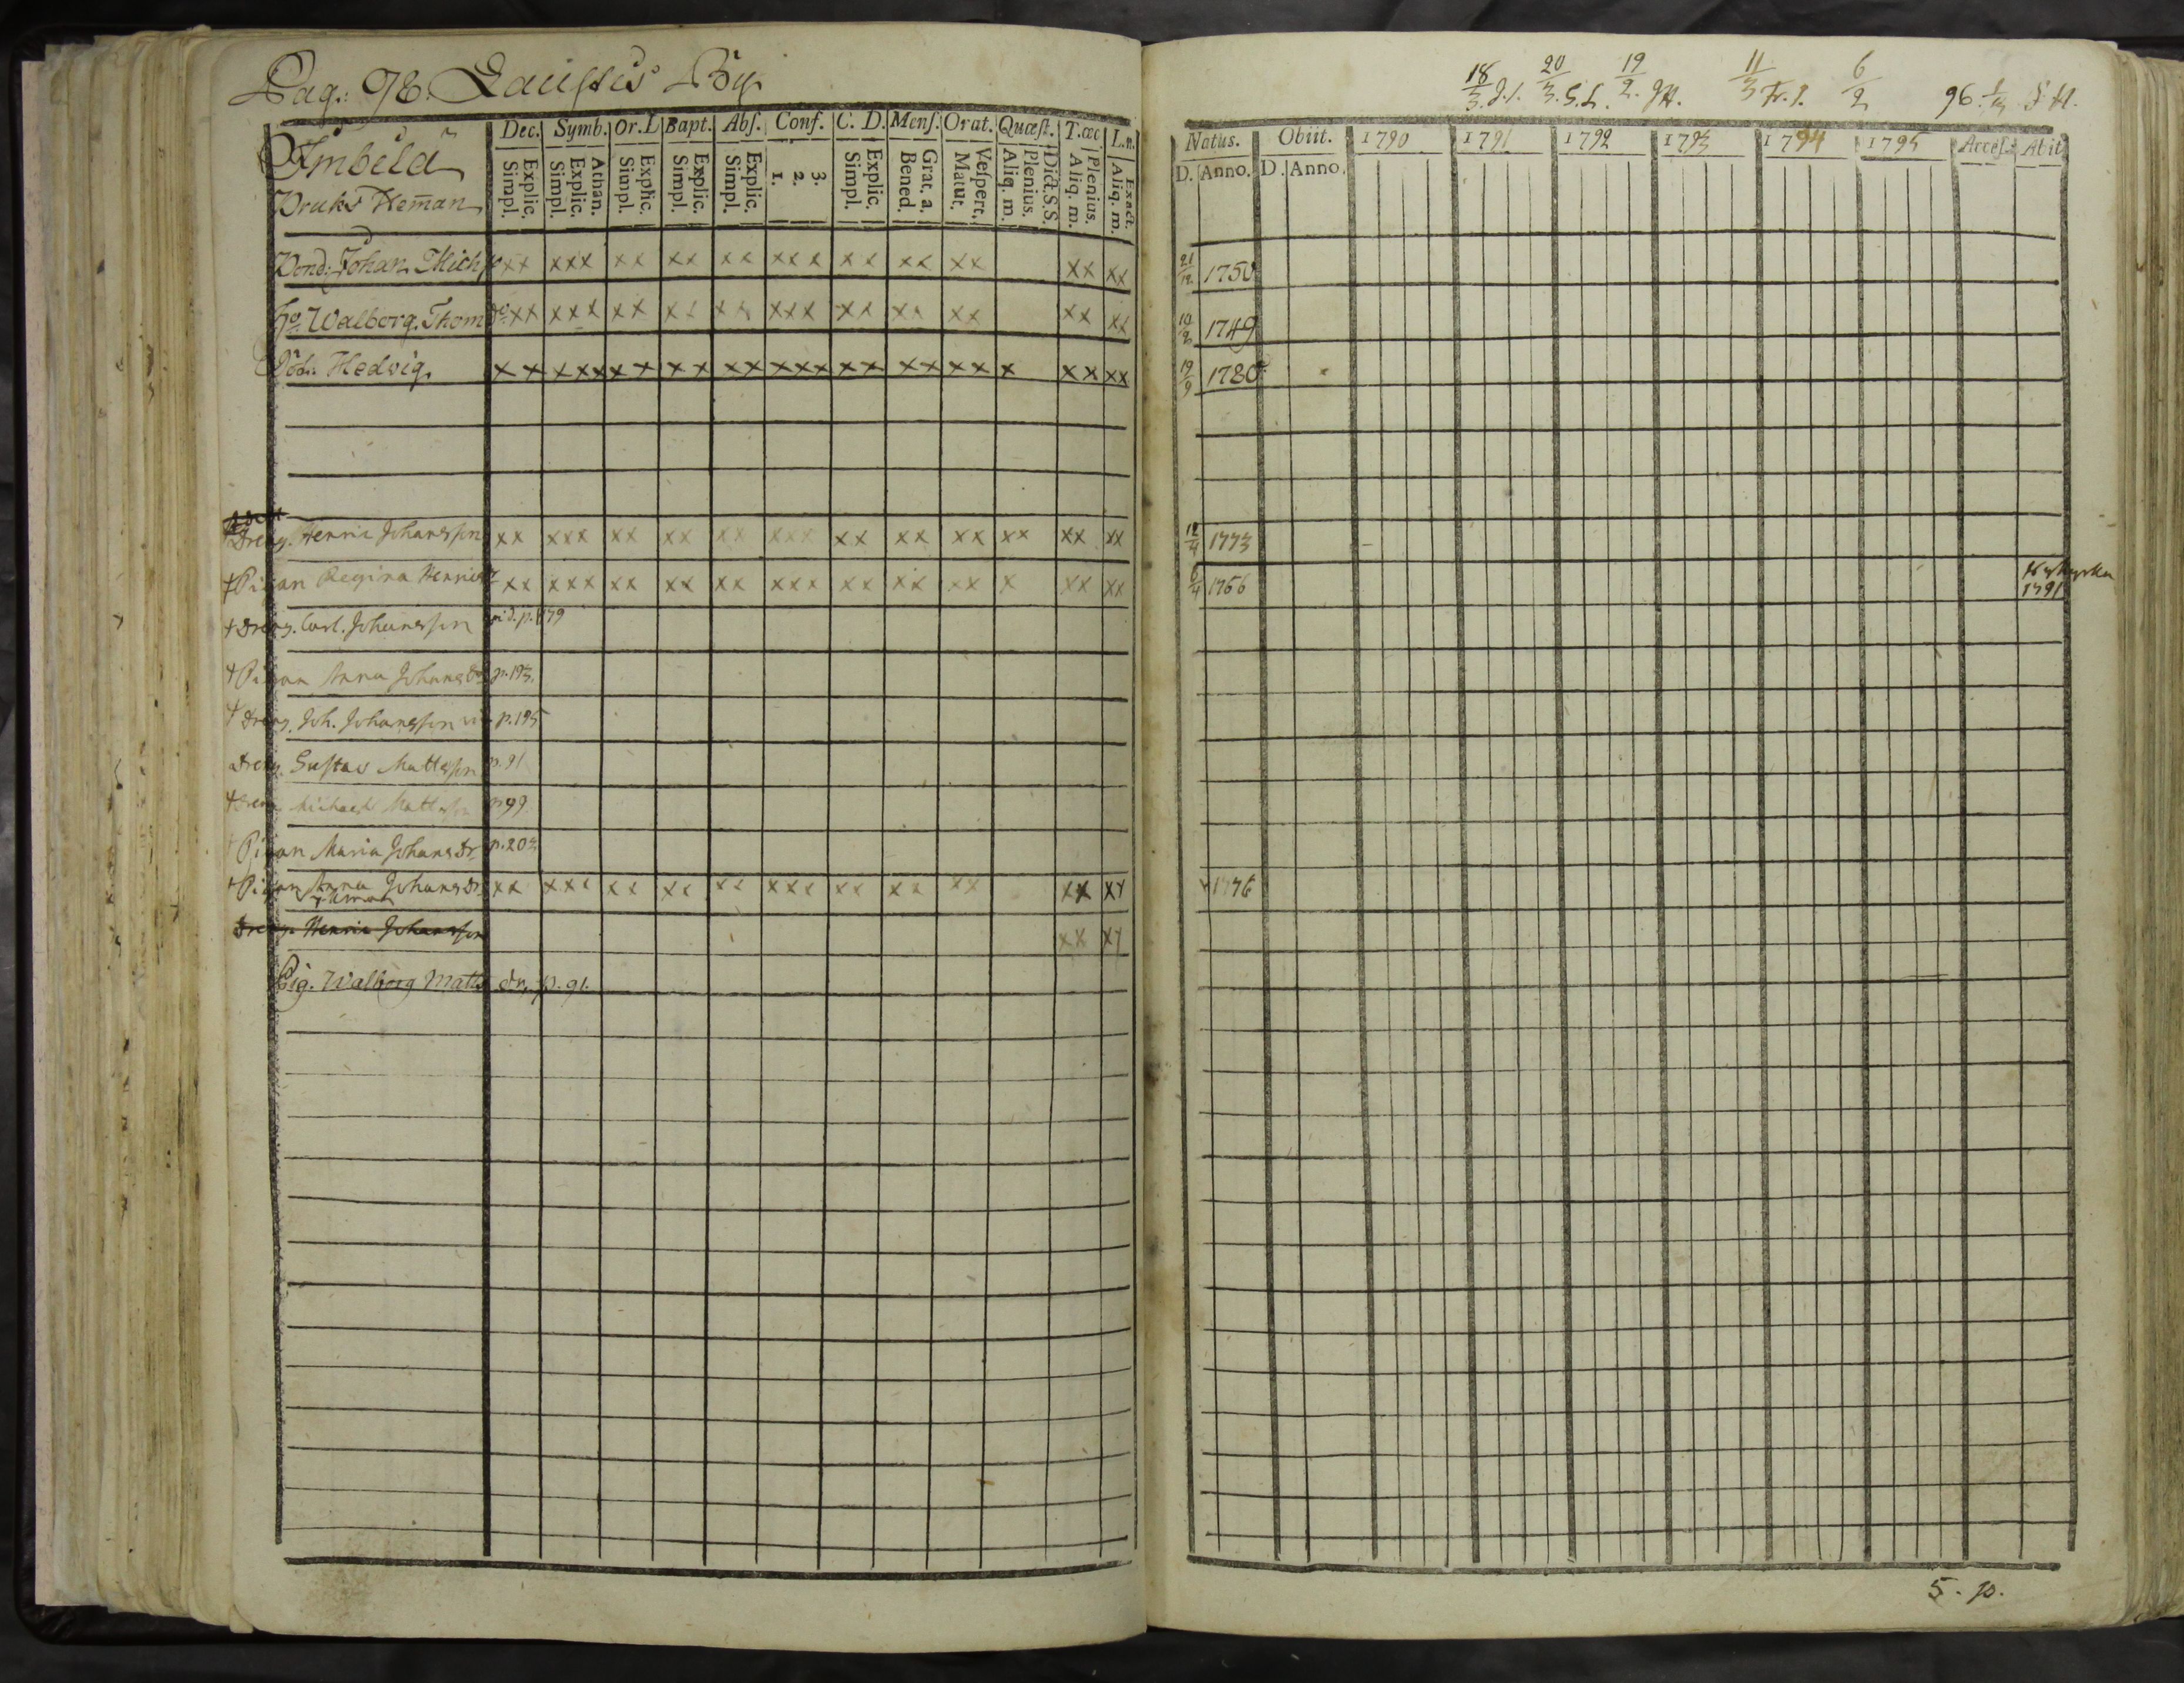 Pag: 98. Laustis By.
18/3. J.I. 20/3. G.L. 19/2. JH. 11/3 Fr.I. 6/2 96. 1/3 J.H.
Dec. Symb. Or.L Bapt. Abſ. Conf. C. D. Menſ. Orat. Quæſt. T.œc L.n.
Explic. Simpl. Athan. Explic. Simpl. Explic. Simpl. Explic. Simpl. Explic. Simpl. 3. 2. 1. Explic. Simpl. Grat. a. Bened. Veſpert. Matut. Dict.S.S. Plenius. Aliq. m. Plenius. Aliq. m. Exact. Aliq. m.
Natus. Obiit. 1790 1791 1792 1793 1794 1795 Acceſ. Abit
D. Anno. D. Anno.
Imbilä
Bruks Heman
Bond: Johan Mich xx xxx xx xx xx xxx xx xx xx xx xx 21/12. 1750
Ho. Walborg. Thom dr xx xxx xx xx xx xxx xx xx xx xx xx 10/2 1749
Dod: Hedvig. xx xxx xx xx xx xxx xx xx xx x xx xx 19/9 1780
Dreng. Henric Johansson xx xxx xx xx xx xxx xx xx xx xx xx xx 12/4 1773
+ Pigan Regina Henrics xx xxx xx xx xx xxx xx xx xx x xx xx 6/4 1766 Nykyrka 1791
+ Dreng. Carl. Johansson vid. p. 179
+ Pigan Anna Johans dr p. 193.
+ Dreng. Joh. Johansson p. 195
Dreng. Gustav Mattsson p. 91
+ Dreng Michael Mattsson p 99.
Pigan Maria Johans dr p. 203
+ Pigan Anna Johans dr xx xxx xx xx xx xxx xx xx xx xx xx 1776
Dreng. Henric Johansson xx xx
Pig. Walborg Matts dr, p. 91.
5. p.